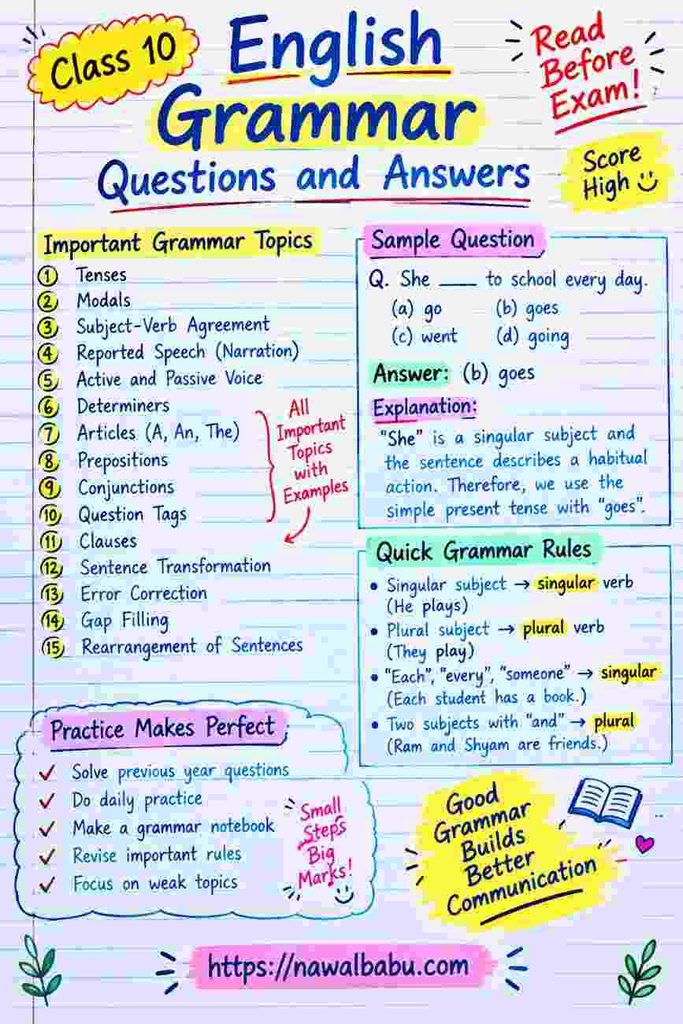 Class 10
English
Grammar
Questions and Answers
Read
Before
Exam!
Score
High
Important Grammar Topics
1 Tenses
2 Modals
3 Subject-Verb Agreement
4 Reported Speech (Narration)
5 Active and Passive Voice
6 Determiners
7 Articles (A, An, The)
8 Prepositions
9 Conjunctions
10 Question Tags
11 Clauses
12 Sentence Transformation
13 Error Correction
14 Gap Filling
15 Rearrangement of Sentences
All
Important
Topics
with
Examples
Sample Question
Q. She ____ to school every day.
(a) go (b) goes
(c) went (d) going
Answer: (b) goes
Explanation:
"She" is a singular subject and
the sentence describes a habitual
action. Therefore, we use the
simple present tense with "goes".
Quick Grammar Rules
• Singular subject → singular verb
(He plays)
• Plural subject → plural verb
(They play)
• "Each", "every", "someone" → singular
(Each student has a book.)
• Two subjects with "and" → plural
(Ram and Shyam are friends.)
Practice Makes Perfect
✓ Solve previous year questions
✓ Do daily practice
✓ Make a grammar notebook
✓ Revise important rules
✓ Focus on weak topics
Small
Steps
Big
Marks!
Good
Grammar
Builds
Better
Communication
https://nawalbabu.com